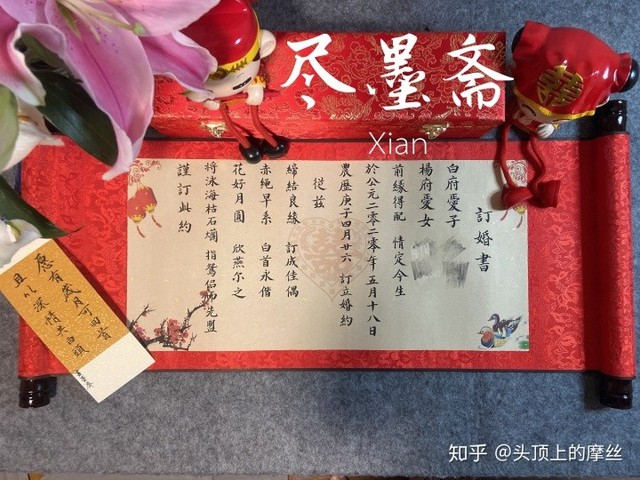 尽墨斋
Xian
訂婚書
白府愛子
楊府愛女
前緣得配 情定今生
於公元二零二零年五月十八日
農歷庚子四月廿六 訂立婚約
從茲
締結良緣 訂成佳偶
赤绳早系 白首永偕
花好月圓 欣燕尔之
将泳海枯石爛 指鴛侣而先盟
謹訂此約
愿有歲月可回首
且以深情共白頭
知乎 @头顶上的摩丝